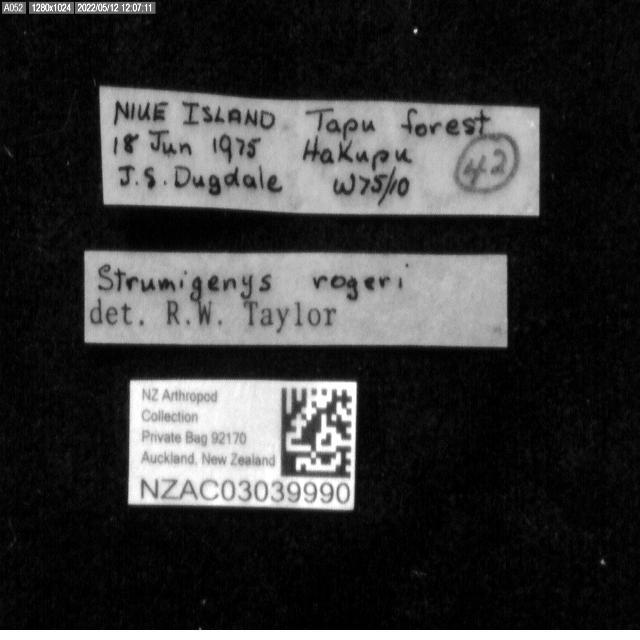 A052 1280x1024 2022/05/12 12:07:11
NIUE ISLAND Tapu forest
18 Jun 1975 Hakupu 42
J.S. Dugdale W75/10
Strumigenys rogeri
det. R.W. Taylor
NZ Arthropod
Collection
Private Bag 92170
Auckland, New Zealand
NZAC03039990